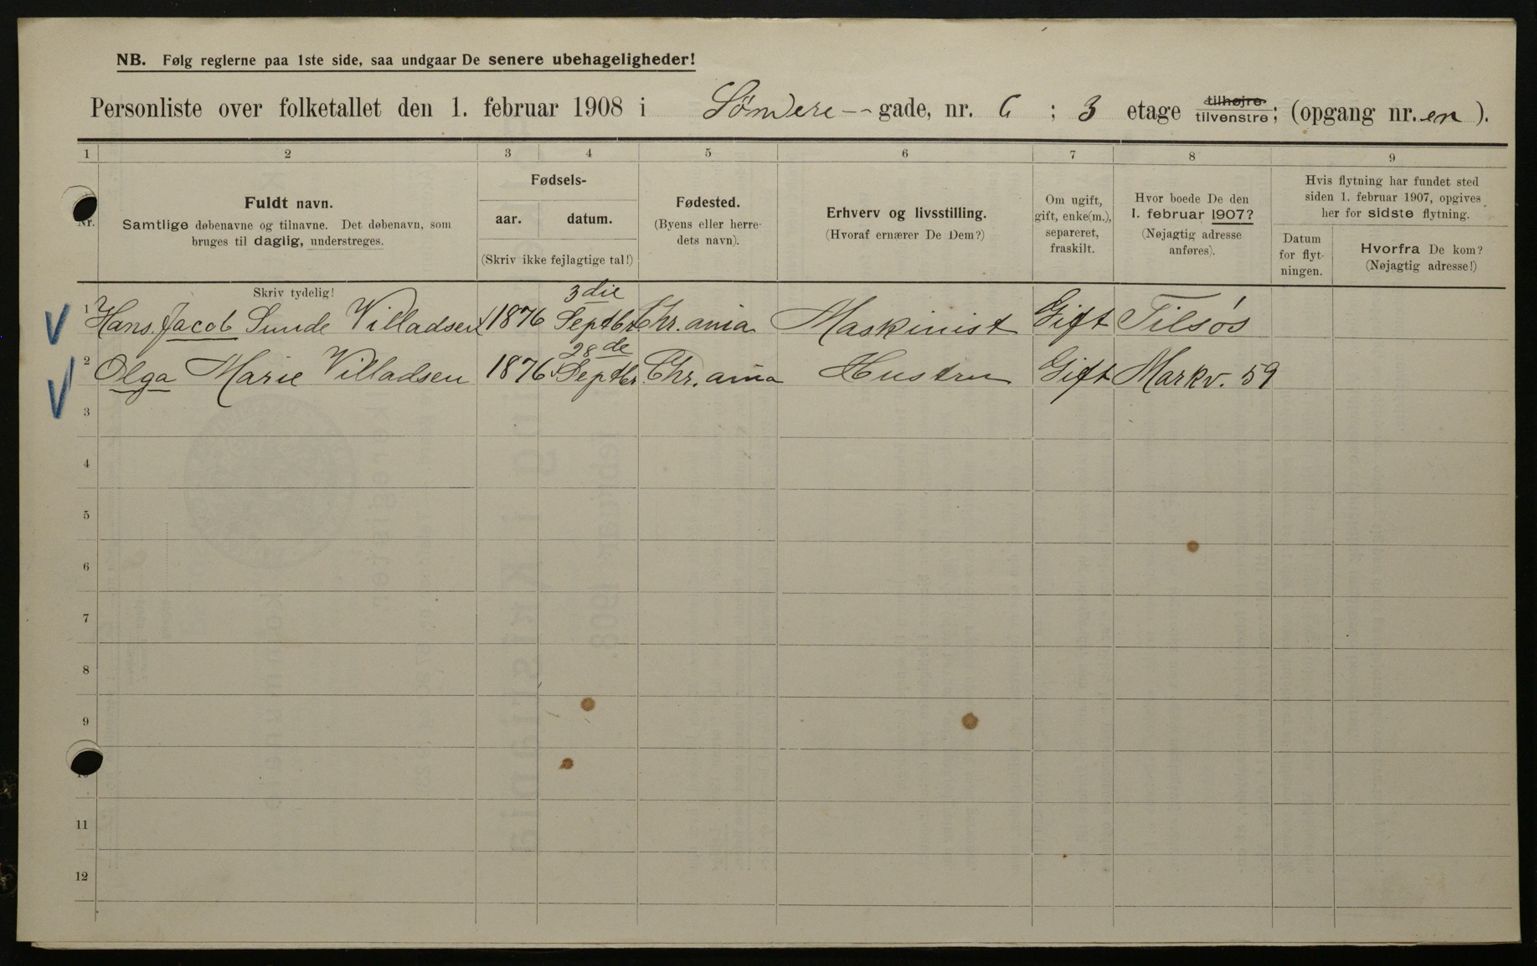 NB. Følg reglerne paa 1ste side, saa undgaar De senere ubehageligheder!
Personliste over folketallet den 1. februar 1908 i Søndre -- gade, nr. 6 ; 3 etage tilhøjre tilvenstre; (opgang nr. en ).
1 2 3 4 5 6 7 8 9
Nr.
Fuldt navn.
Samtlige døbenavne og tilnavne. Det døbenavn, som
bruges til daglig, understreges.
Fødsels-
aar. datum.
(Skriv ikke fejlagtige tal!)
Fødested.
(Byens eller herre-
dets navn).
Erhverv og livsstilling.
(Hvoraf ernærer De Dem?)
Om ugift,
gift, enke(m.),
separeret,
fraskilt.
Hvor boede De den
1. februar 1907?
(Nøjagtig adresse
anføres).
Hvis flytning har fundet sted
siden 1. februar 1907, opgives
her for sidste flytning.
Datum
for flyt-
ningen.
Hvorfra De kom?
(Nøjagtig adresse!)
Skriv tydelig!
3die
1 Hans Jacob Sunde Villadsen 1876 Septbr Chr.ania Maskinist Gift Tilsøs
28de
2 Olga Marie Villadsen 1876 Septbr Chr.ania Hustru Gift Markv. 59
3
4
5
6
7
8
9
10
11
12